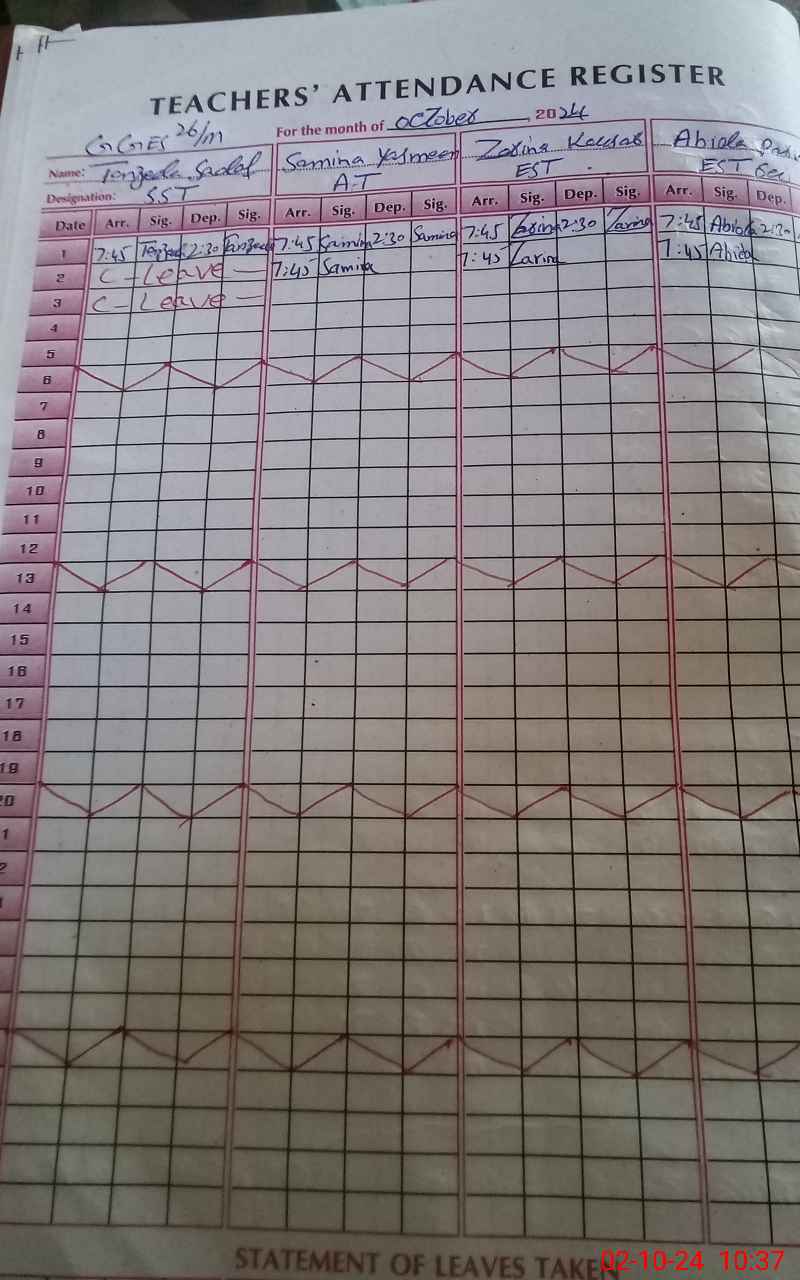 TEACHERS' ATTENDANCE REGISTER
GGES 26/M For the month of October, 2024
Name: Tanzeela Sadaf Samina Yasmeen Zarina Kausar Abida
Designation: SST A.T EST EST
Date Arr. Sig. Dep. Sig. Arr. Sig. Dep. Sig. Arr. Sig. Dep. Sig. Arr. Sig. Dep.
1 7:45 Tanzeela 2:30 Tanzeela 7:45 Samina 2:30 Samina 7:45 Zarina 2:30 Zarina 7:45 Abida 2:30
2 C-Leave 7:45 Samina 7:45 Zarina 7:45 Abida
3 C-Leave
4
5
6
7
8
9
10
11
12
13
14
15
16
17
18
19
20
1
2
STATEMENT OF LEAVES TAKEN
02-10-24 10:37